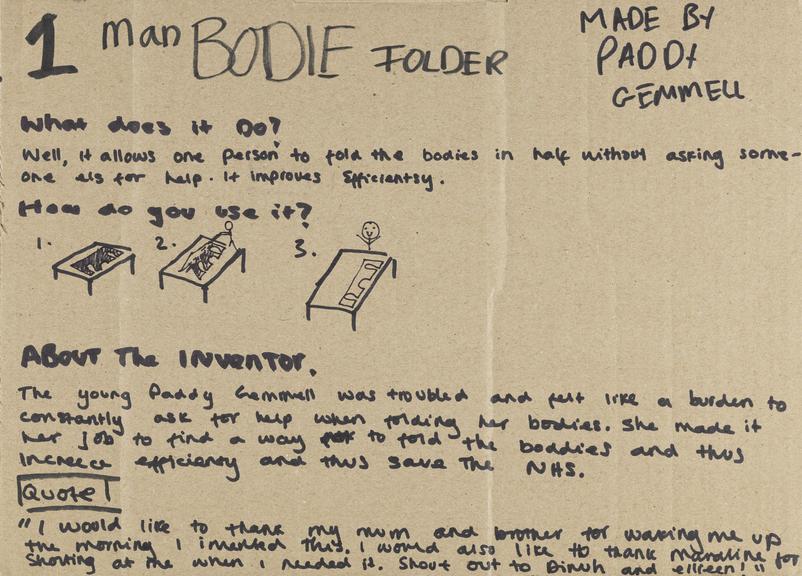 1 man BODIE FOLDER
MADE BY
PADDY
GEMMELL
What does it Do?
Well, it allows one person to fold the bodies in half without asking some-
one els for help. It improves Efficientsy.
How do you use it?
1. 2. 3.
ABOUT The INVENTOR.
The young Paddy Gemmell was troubled and felt like a burden to
constantly ask for help when folding her bodies. She made it
her job to find a way to fold the boddies and thus
increece efficiency and thus save The NHS.
Quote
"I would like to thank my mum and brother for waking me up
the morning I invented this. I would also like to thank for
Shorting at the when I needed it. Shout out to and eilreen!"